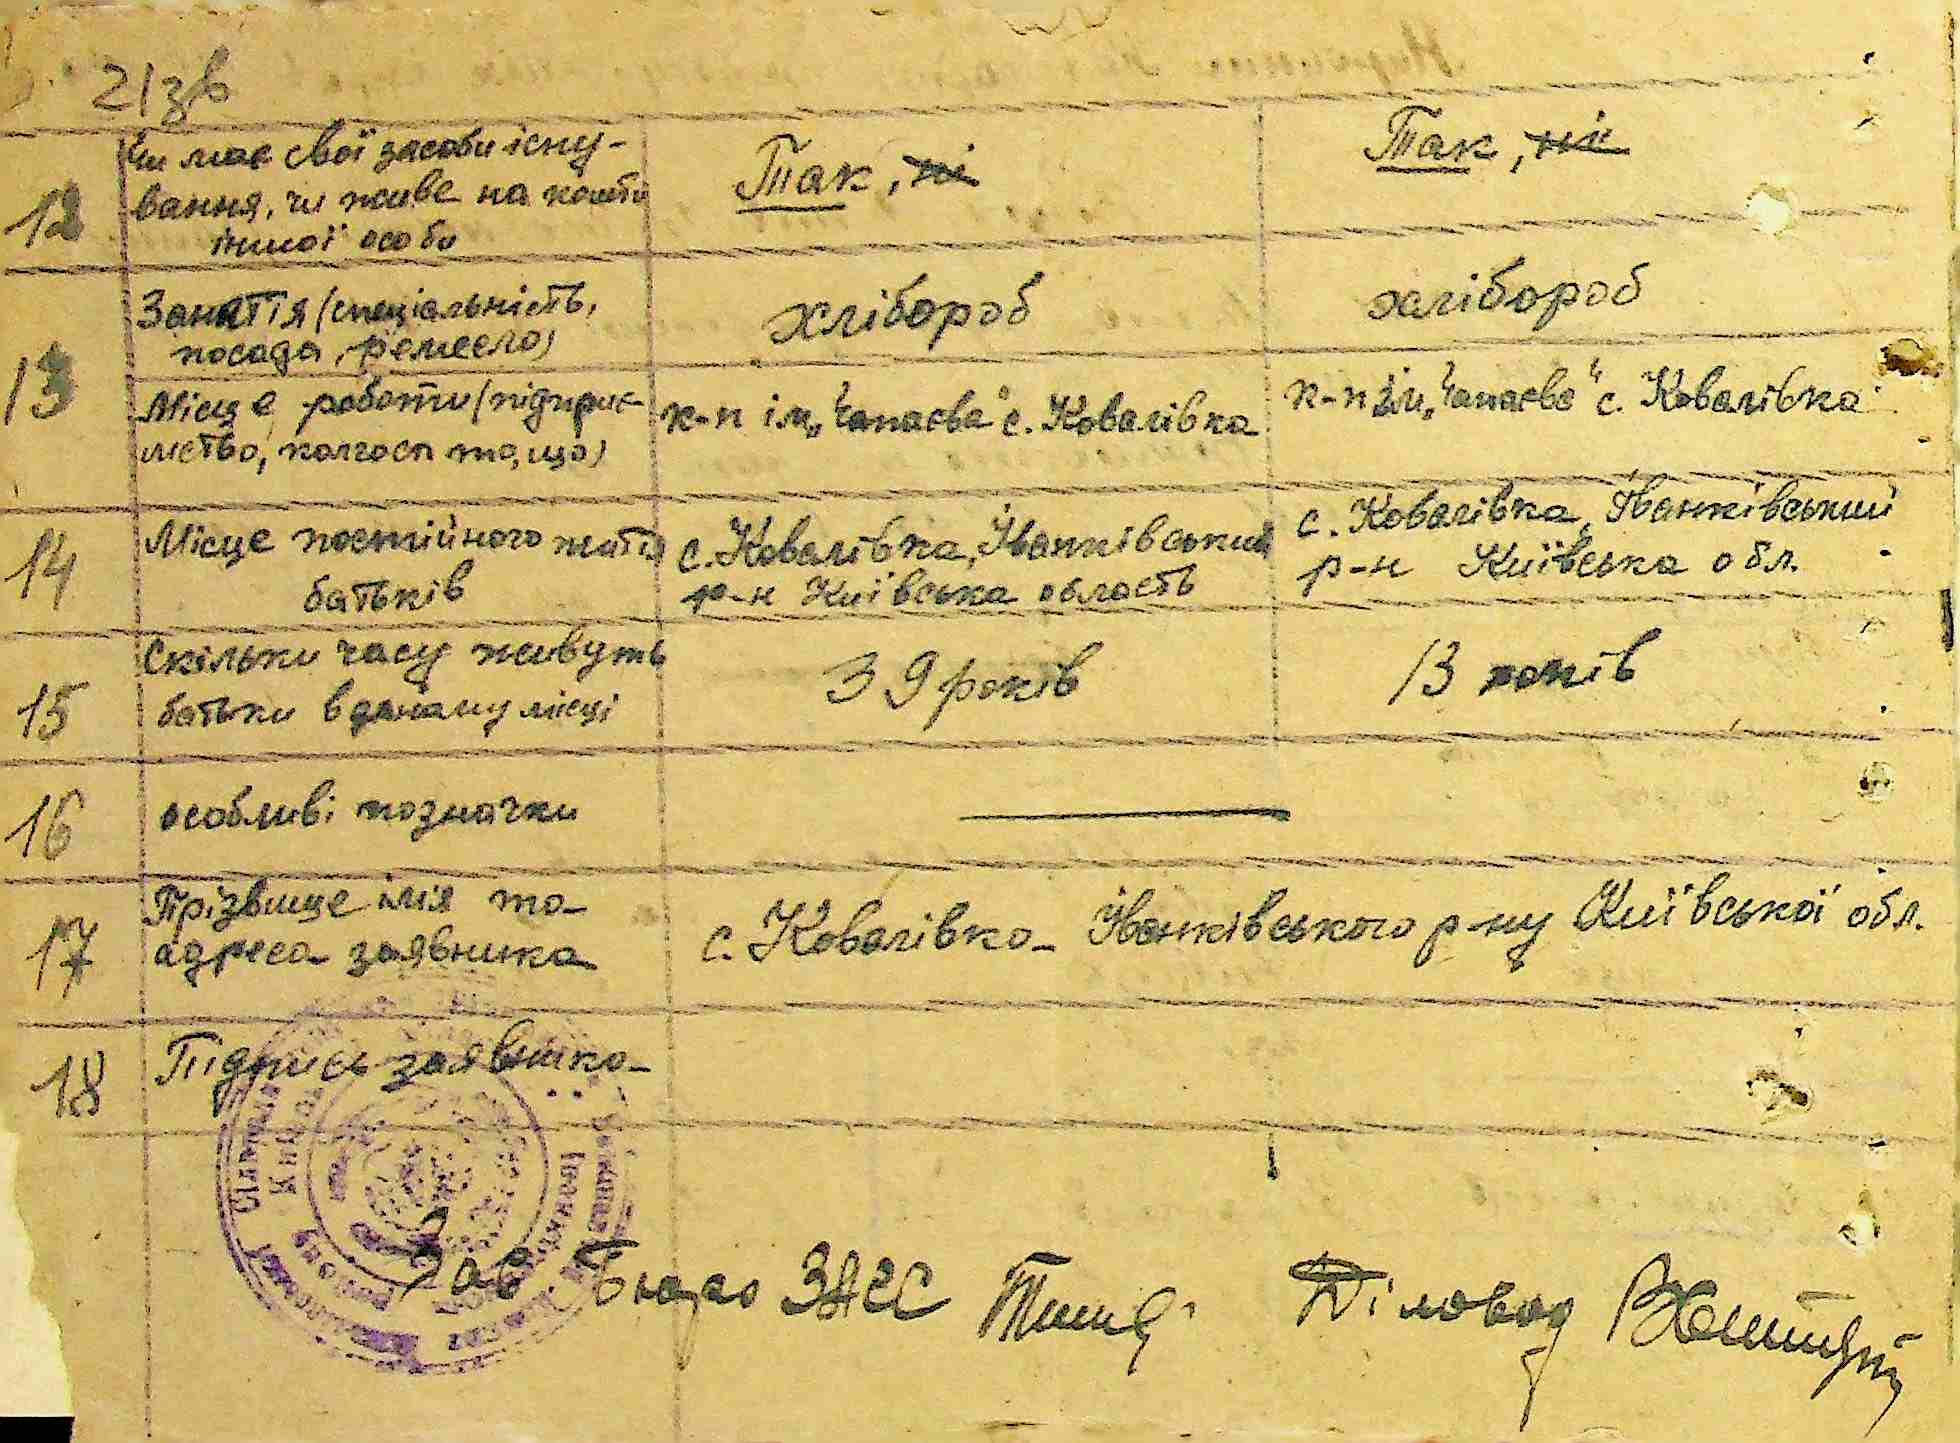 21зв
12 Чи має свої засоби існу-
вання, чи живе на кошти
іншої особи
Так, ні
Так, ні
13 Заняття (спеціальність,
посада, ремесло)
хлібороб
хлібороб
Місце роботи (підприє-
мство, колгосп то, що)
к-п ім „Чапаєва" с. Ковалівка
к-п ім „Чапаєва" с. Ковалівка
14 Місце постійного життя
батьків
с. Ковалівка, Іванківський
р-н Київська область
с. Ковалівка, Іванківський
р-н Київська обл.
15 Скільки часу живуть
батьки в даному місці
39 років
13 років
16 особливі позначки
17 Прізвище імія та
адреса заявника
с. Ковалівка Іванківського р-ну Київської обл.
18 Підпись заявника
Зав Бюро ЗАГС
Діловод